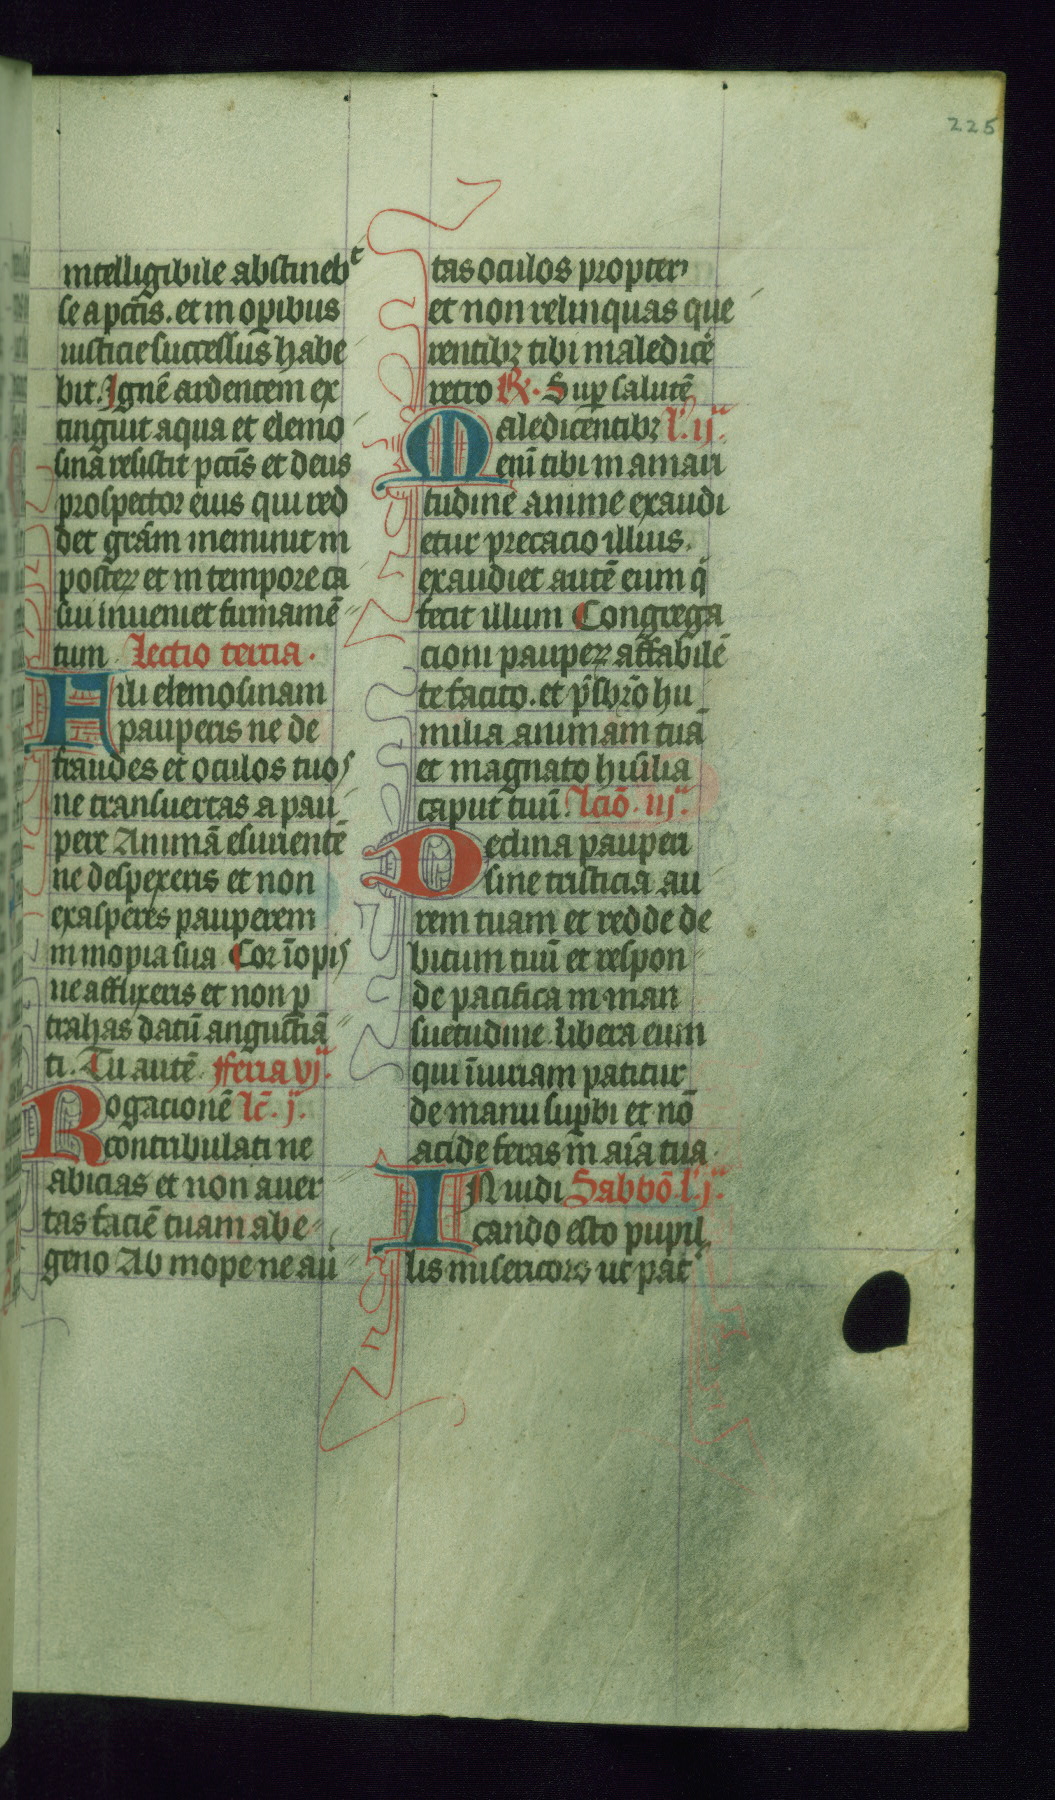 225
intelligibile abstineb^t
se a pctīs. et in op̄ibus
iusticie successus̄ habe
bit. Ignē ardentem ex
tinguit aqua et elemo
sinā resistit pctīs et deus
prospector eius qui red
det grām meminit in
posteꝝ et in tempore ca
sui inueniet firmamē
tum Lectio tercia.
Fili elemosinam
pauperis ne de
fraudes et oculos tuos
ne transuertas a pau
pere Animā esurientē
ne despexeris et non
exasperes pauperem
in inopia sua Cor īopis
ne afflixeris et non ꝓ
trahas datū angustiā
ti. Tu autē. fferia vj^a.
Rogacionē lc̄. j^a.
contribulati ne
abicias et non auer
tas faciē tuam ab e
geno Ab inope ne au̅
tas oculos propter
et non relinquas que
rentibꝫ tibi maledicē
retro ℟. Sup̄ salutē
Maledicentibꝫ l'. ij^a.
eni̅ tibi in amari
tudine anime exaudi
etur precacio illius.
exaudiet autē eum q̇
fecit illum Congrega
cioni paupeꝝ affabilē
te facito. et p̄sbr̄o hu
milia animam tuā
et magnato hūilia
caput tuū. lciō. iij^a.
Declina pauperi
sine tristicia au
rem tuam et redde de
bitum tuū et respon
de pacifica in man
suetudine. libera eum
qui īiuriam patitur
de manu sup̄bi et nō
acide feras ī aīa tua
IN iudi Sabbō. l'. j^a.
cando esto pupil
lis misericors ut pat̄